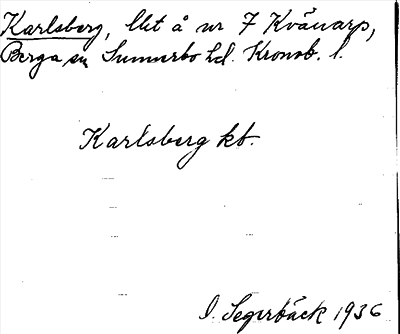 Karlsberg, lht å nr 7 Kvänarp,
Berga sn Sunnerbo hd. Kronob. l.
Karlsberg kt.
O. Segerbäck 1936